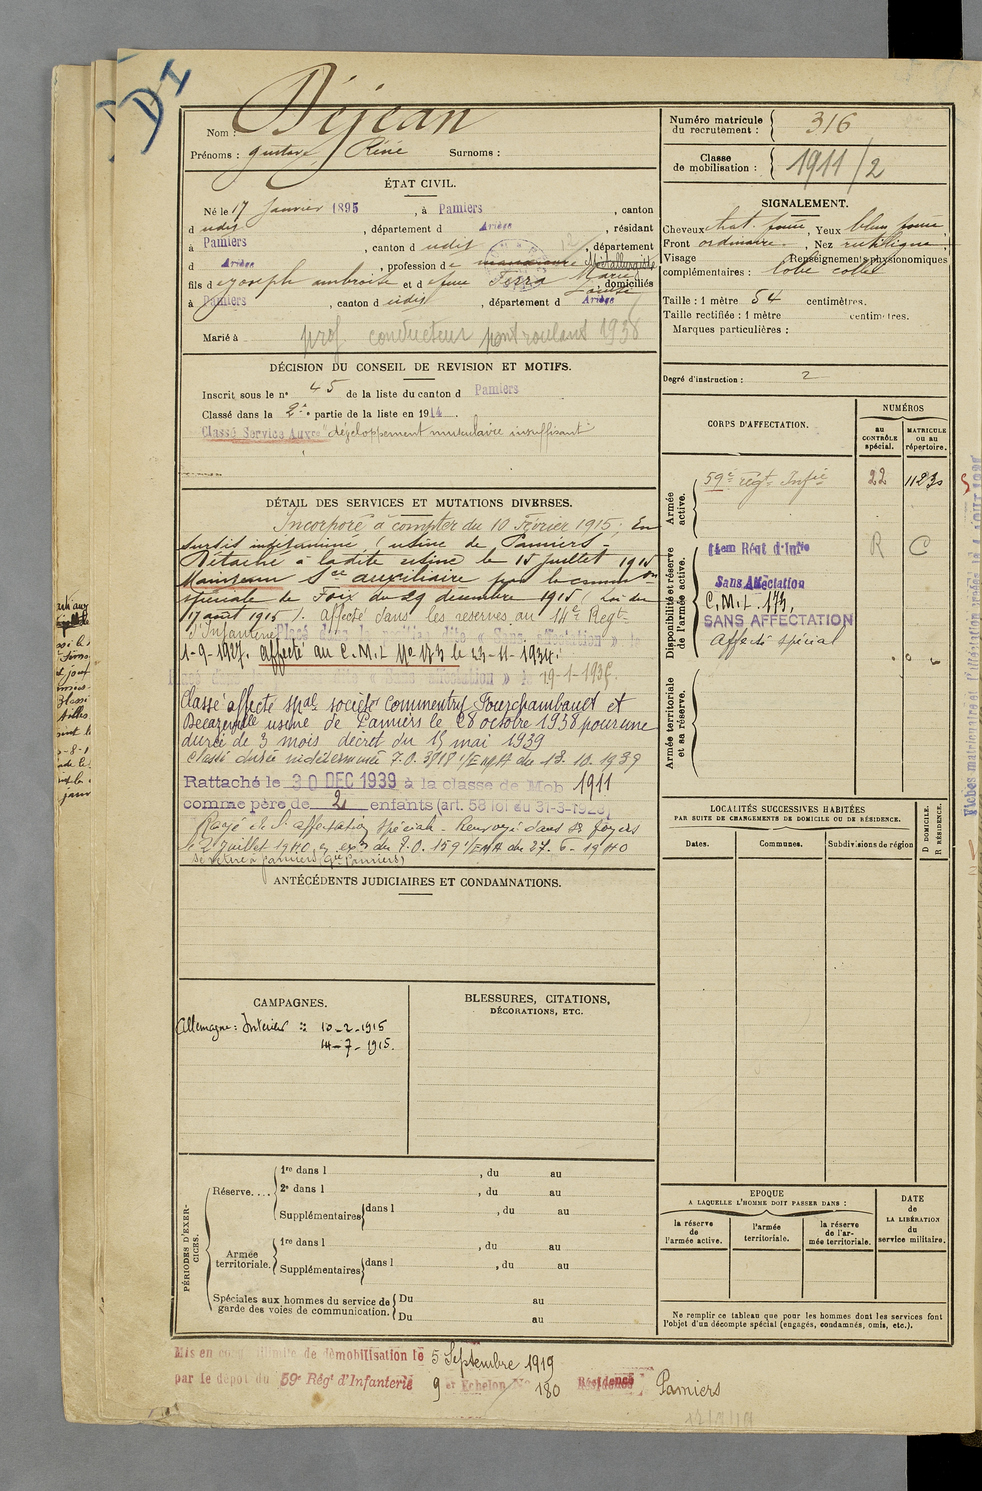 DI
Nom : Déjean
Prénoms : Gustave, Réné Surnoms :
Numéro matricule du recrutement : 316
Classe de mobilisation : 1911/2
ÉTAT CIVIL.
Né le 17 Janvier 1895, à Pamiers, canton
d udit, département d Ariège, résidant
à Pamiers, canton d udit, département
d Ariège, profession de manœuvre Métallurgiste
fils d e Joseph ambroise et d e feue Marie Louise, domiciliés
à Pamiers, canton d udit, département d Ariège
Marié à
prof conducteur pont roulant 1938
SIGNALEMENT.
Cheveux chat. foncé, Yeux bleu foncé
Front ordinaire. Nez rectiligne
Visage Renseignements physionomiques
complémentaires : lobe collé
Taille : 1 mètre 54 centimètres.
Taille rectifiée : 1 mètre centimètres.
Marques particulières :
Degré d'instruction : 2
DÉCISION DU CONSEIL DE REVISION ET MOTIFS.
Inscrit sous le n° 45 de la liste du canton d Pamiers
Classé dans la 2e partie de la liste en 1914.
Classé Service Auxre "développement musculaire insuffisant"
DÉTAIL DES SERVICES ET MUTATIONS DIVERSES.
Incorporé à compter du 10 Février 1915, En
sursis indéterminé (usine de Pamiers.
Détaché à ladite usine le 15 juillet 1915
Maintenu Sce auxiliaire par la common
spéciale de Foix du 29 décembre 1915 (Loi du
17 août 1915). Affecté dans les réserves au 14e Regt
d'Infanterie Placé dans la position dite « Sans affectation » le
1-9-1927. Affecté au C.M.I. No 173 le 23-11-1934.
« Sans affectation » le 19-1-1935.
Classé affecté spal société Commentry Fourchambault et
Decazeville usine de Pamiers le 28 octobre 1938 pour une
durée de 3 mois décret du 15 mai 1939
Classé durée indéterminée F.O. 3718 1/EMA du 13.10.1939
Rattaché le 30 DEC 1939 à la classe de Mob 1911
comme père de 2 enfants (art. 58 loi du 31-3-1928)
Rayé de l'affectation spéciale. Renvoyé dans ses foyers
le 2 Juillet 1940 en exon du F.O. 159 1/EMA du 27-6-1940
se retire à Pamiers (qr Pamiers)
CORPS D'AFFECTATION.
NUMÉROS
AU CONTRÔLE spécial.
MATRICULE ou au répertoire.
Armée active.
59e régt Infie 22 1123
Disponibilité et réserve de l'armée active.
14em Régt d'Infie R C
Sans Affectation
C.M.I. 173,
SANS AFFECTATION
Affecté spécial
Armée territoriale et sa réserve.
LOCALITÉS SUCCESSIVES HABITÉES
PAR SUITE DE CHANGEMENTS DE DOMICILE OU DE RÉSIDENCE.
Dates. Communes. Subdivisions de région
D DOMICILE. R RÉSIDENCE.
ANTÉCÉDENTS JUDICIAIRES ET CONDAMNATIONS.
CAMPAGNES.
Allemagne : Intérieur :: 10-2-1915
14-7-1915.
BLESSURES, CITATIONS,
DÉCORATIONS, ETC.
PÉRIODES D'EXERCICES.
Réserve....
1re dans l , du au
2e dans l , du au
Supplémentaires dans l , du au
Armée territoriale.
1re dans l , du au
Supplémentaires dans l , du au
Spéciales aux hommes du service de garde des voies de communication.
Du au
Du au
EPOQUE
A LAQUELLE L'HOMME DOIT PASSER DANS :
la réserve de l'armée active.
l'armée territoriale.
la réserve de l'armée territoriale.
DATE de LA LIBÉRATION du service militaire.
Ne remplir ce tableau que pour les hommes dont les services font
l'objet d'un décompte spécial (engagés, condamnés, omis, etc.).
Mis en congé illimité de démobilisation le 5 Septembre 1919
par le dépôt du 59e Régt d'Infanterie 9 e Echelon No 180 Résidence Pamiers